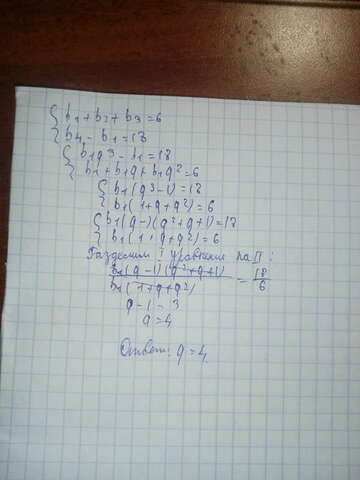 { b₁ + b₂ + b₃ = 6
{ b₄ - b₁ = 18
{ b₁q³ - b₁ = 18
{ b₁ + b₁q + b₁q² = 6
{ b₁(q³-1) = 18
{ b₁(1+q+q²) = 6
{ b₁(q-1)(q²+q+1) = 18
{ b₁(1+q+q²) = 6
Разделим I уравнение на II:
b₁(q-1)(q²+q+1) / b₁(1+q+q²) = 18/6
q-1=3
q=4
Ответ: q=4.